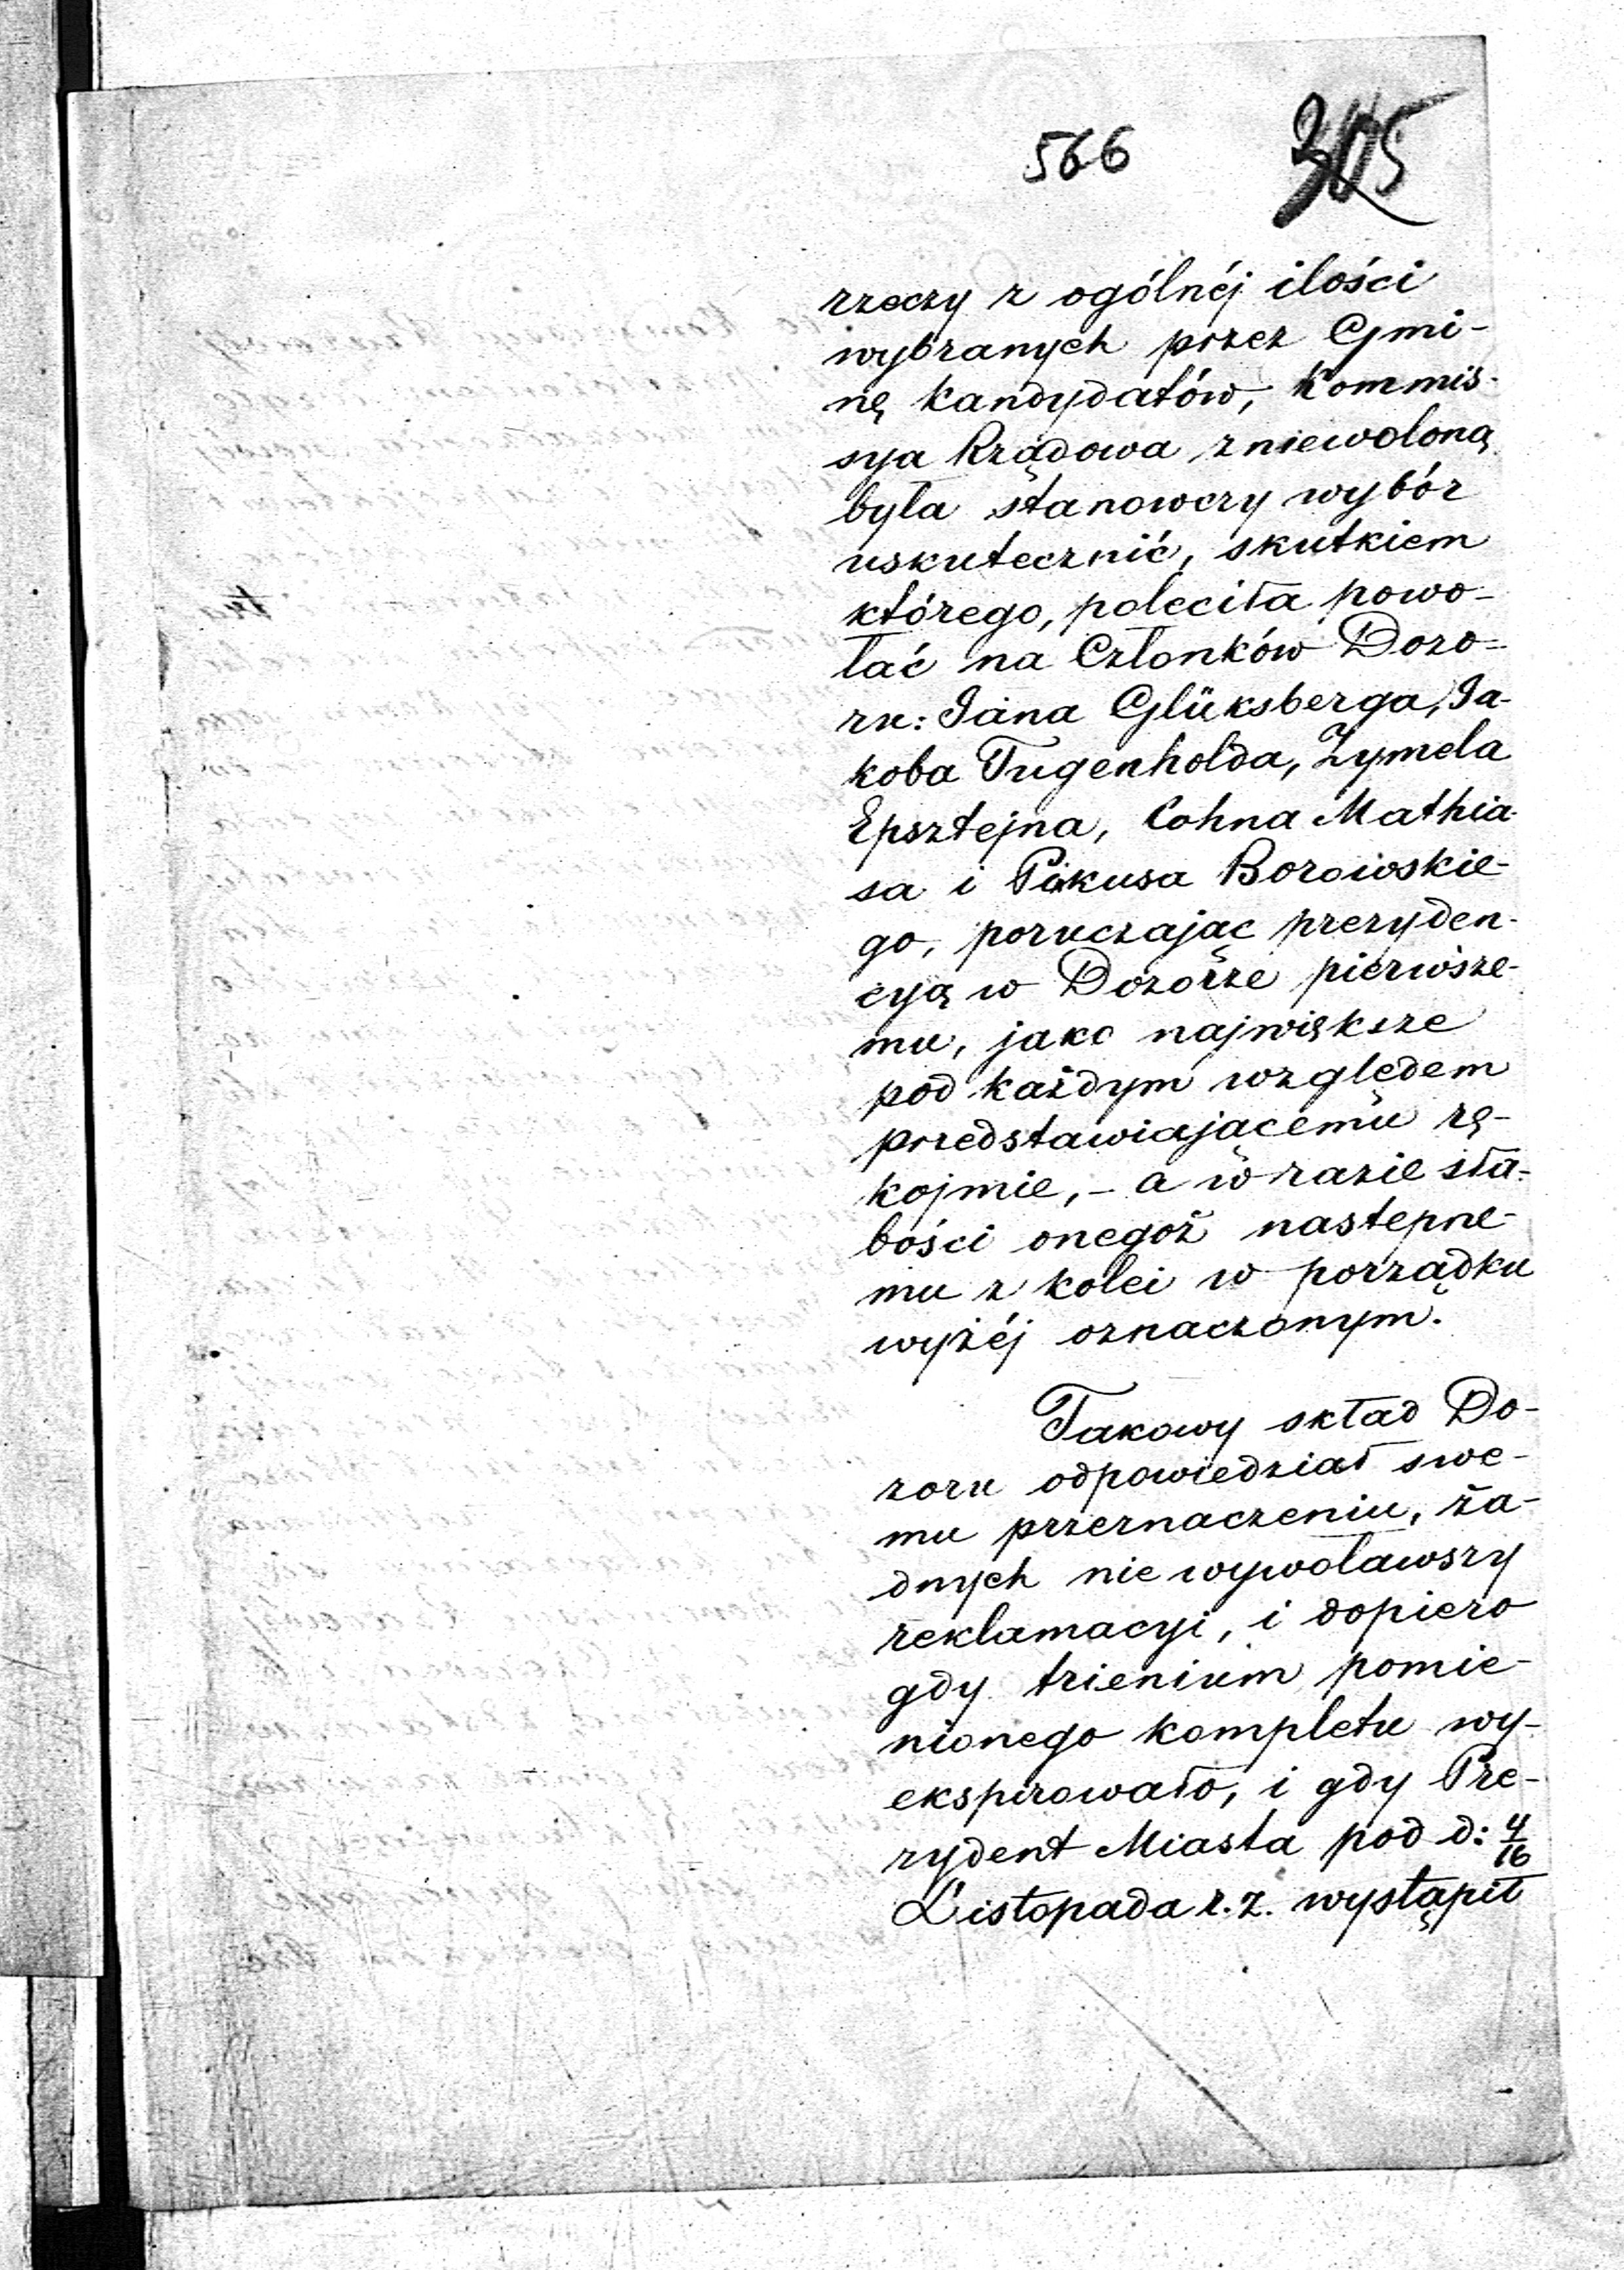 566 305
rzeczy z ogólnéj ilości
wybranych przez Gmi-
nę kandydatów, Kommis-
sya Rządowa zniewoloną
była stanowczy wybór
uskutecznić, skutkiem
którego, poleciła powo-
łać na Członków Dozo-
ru: Jana Glüksberga, Ja-
koba Tugenholda, Zymela
Epsztejna, Cohna Mathia-
sa i Pinkusa Borowskie-
go, poruczając prezyden-
cyą w Dozorze pierwsze-
mu, jako największe
pod każdym względem
przedstawiającemu rę-
kojmie, - a w razie sła-
bości onegoż nastepne-
mu z kolei w porządku
wyżéj oznaczonym.
Takowy skład Do-
zoru odpowiedział swe-
mu przeznaczeniu, ża-
dnych nie wywoławszy
reklamacyi, i dopiero
gdy trienium pomie-
nionego kompletu wy-
ekspirowało, i gdy Pre-
zydent Miasta pod d: 4/16
Listopada r. z. wystąpił